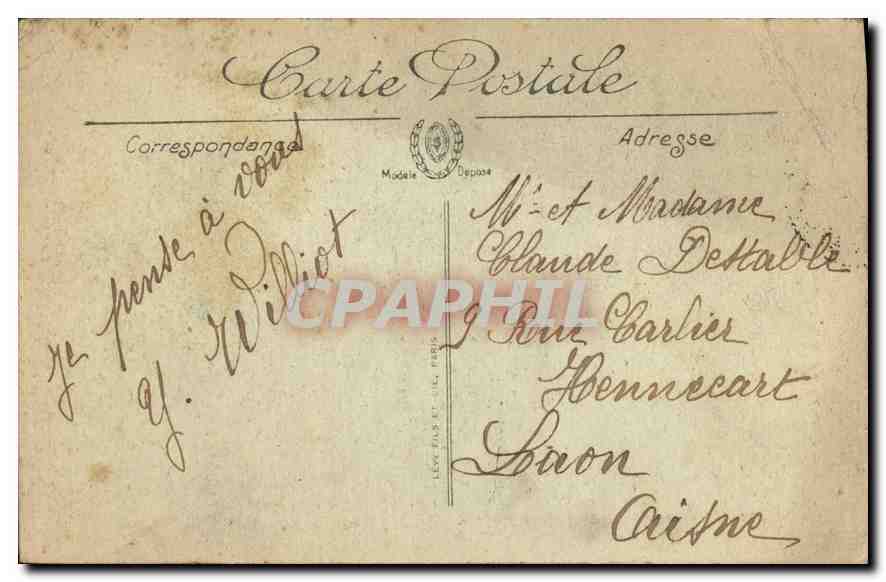 Carte Postale
Correspondance
Adresse
Modèle Déposé
Je pense à vous
Y. Williot
Mr et Madame
Claude Destable
9 Rue Carlier
Hennecart
Laon
Aisne
LEVY FILS ET CIE, PARIS
CPAPHIL